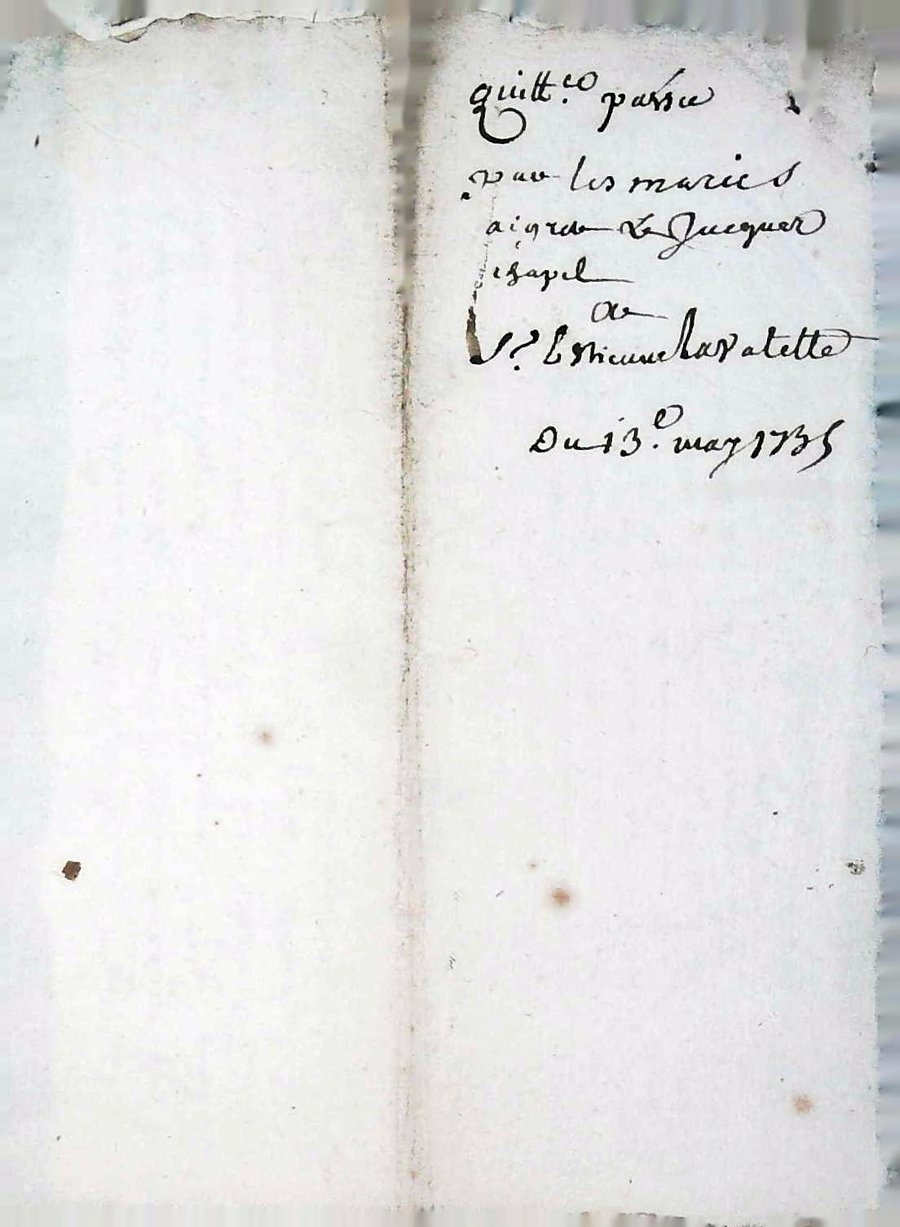 quitt.ce passée
par les mariés
aigre Le Jacques
chapel
de
Sr. Estienne Lavalette
Du 13.e may 1735